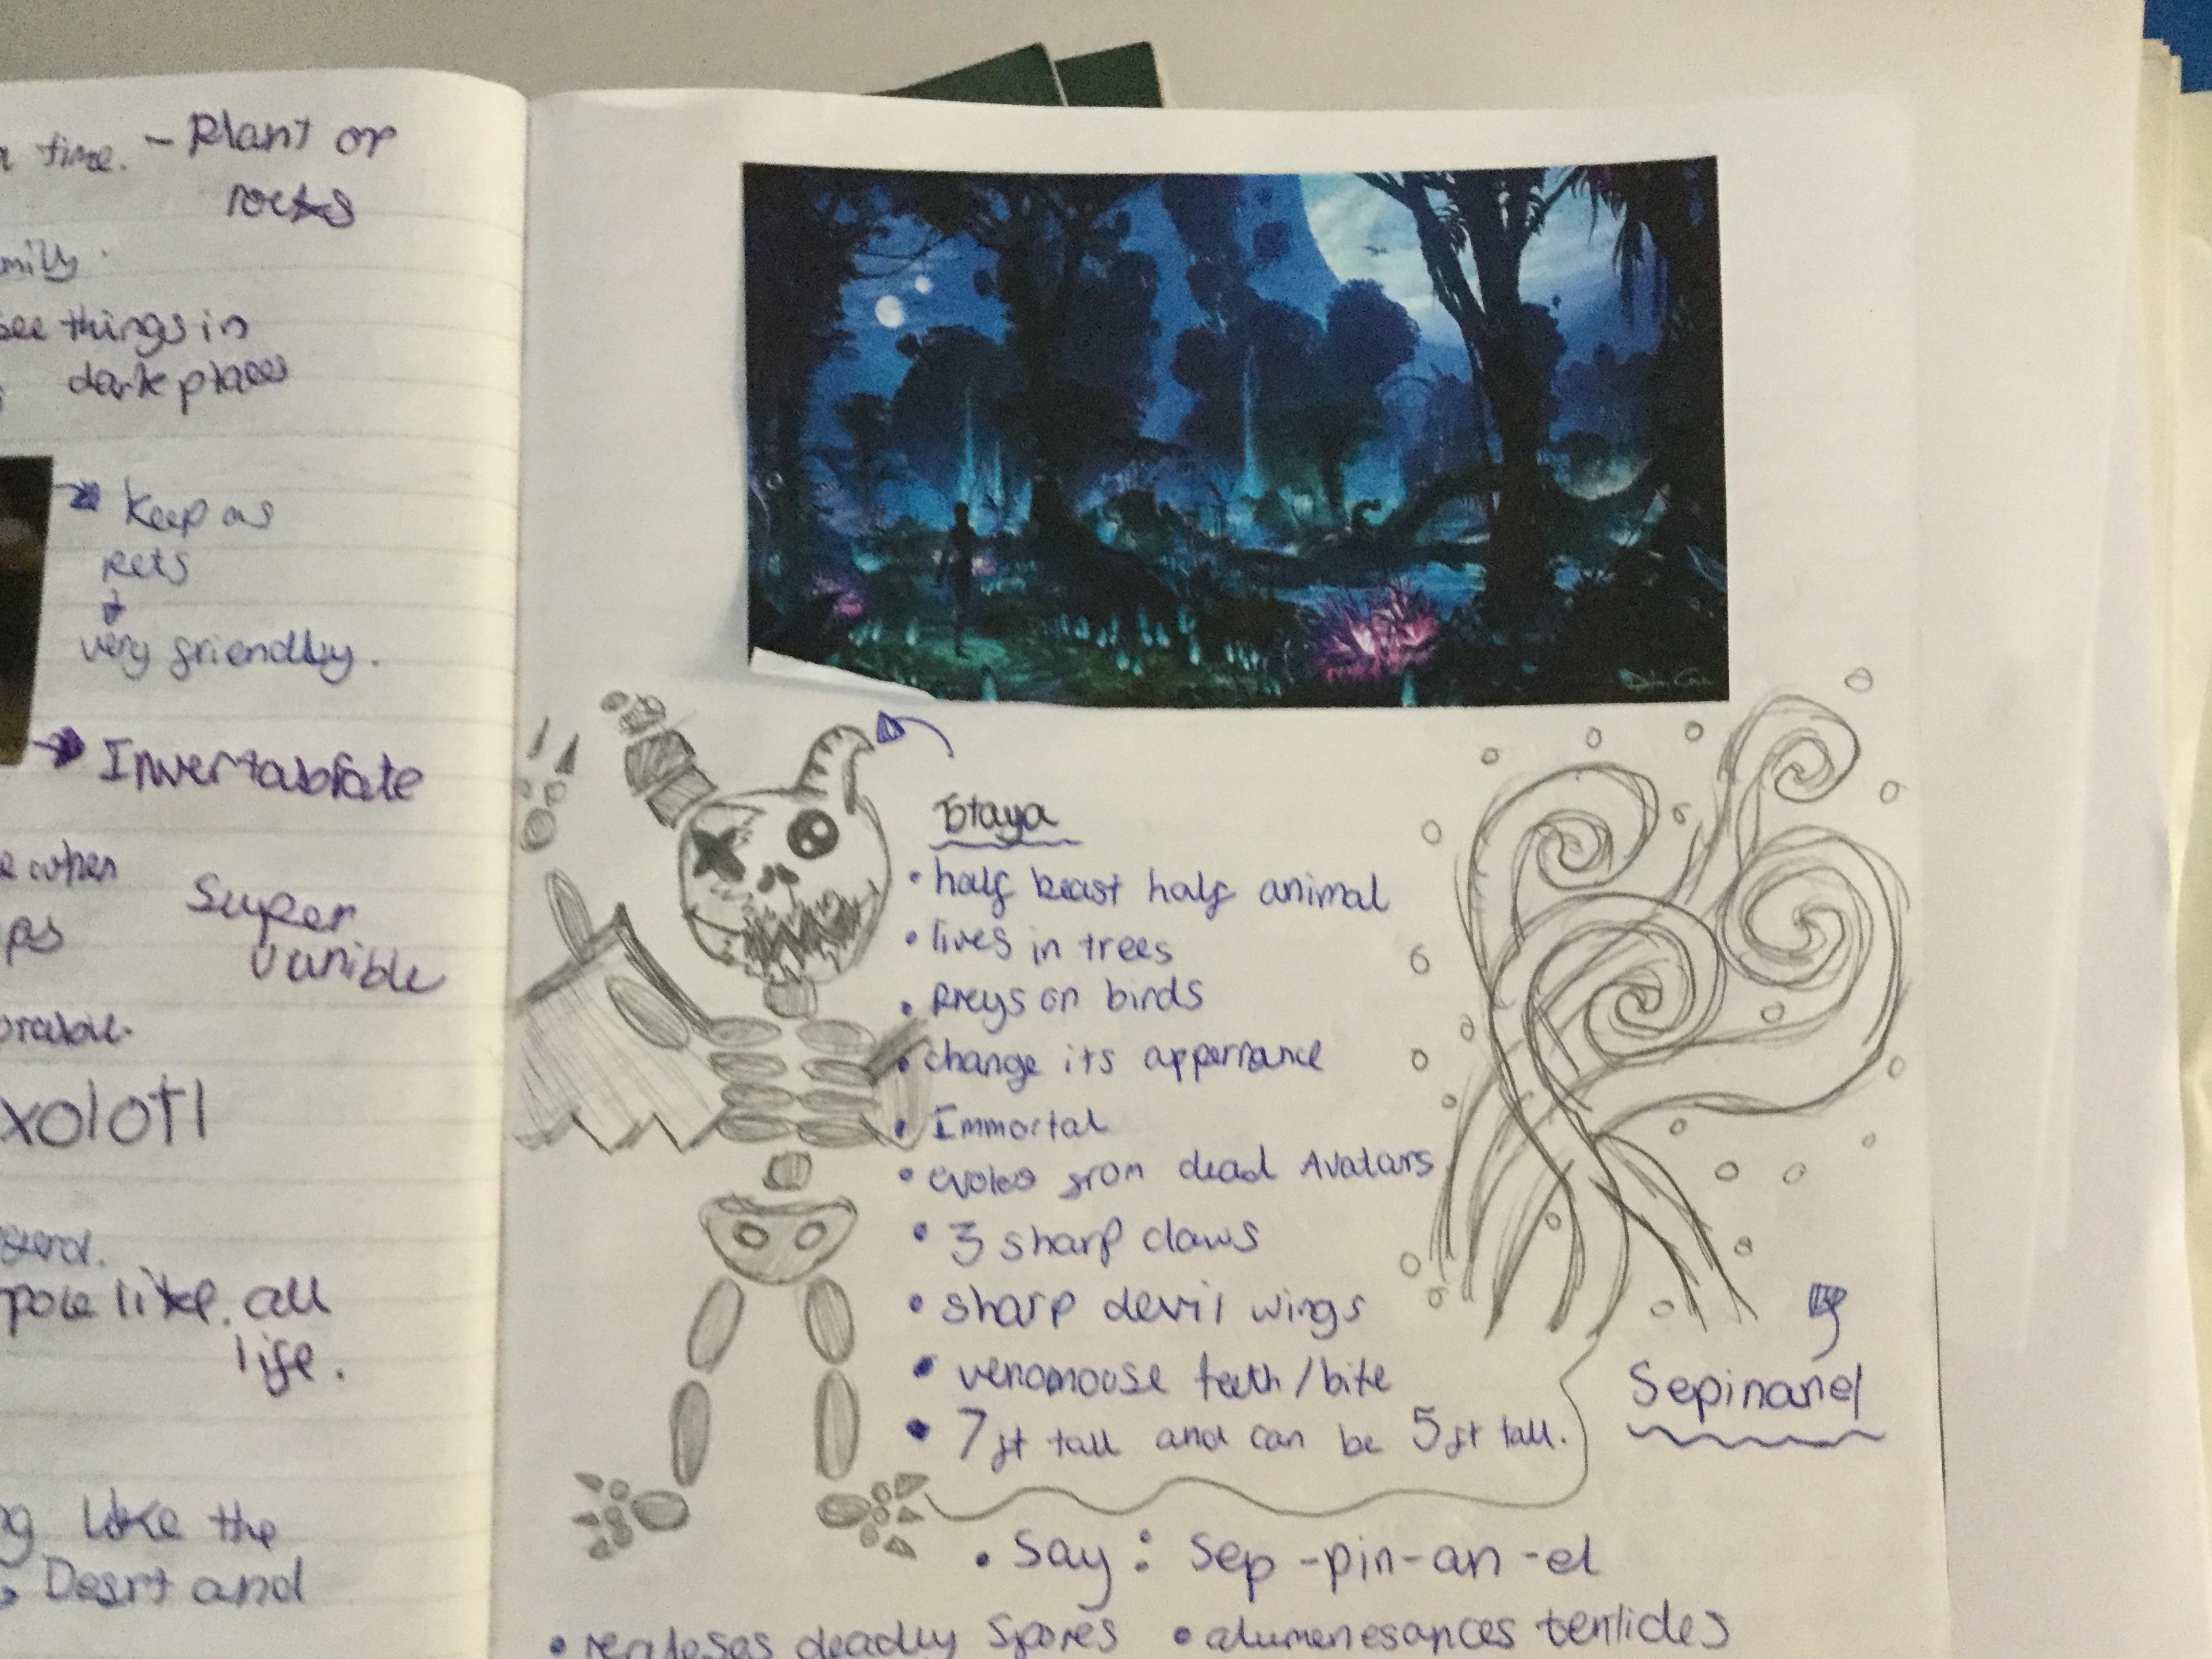 time. - Plant or
rocks
see things in
dark places
Keep as
pets
+
very friendly.
Invertabrate
when
Super
vanible
xolotl
pole like. all
life.
Like the
Desrt and
half beast half animal
lives in trees
Preys on birds
change its apperrance
Immortal
evoles from dead Avatars
3 sharp claws
sharp devil wings
venomouse teeth/bite
7ft tall and can be 5ft tall.
Sepinanel
• Say: Sep-pin-an-el
• realeses deadly Spores • alumenesances tenticles